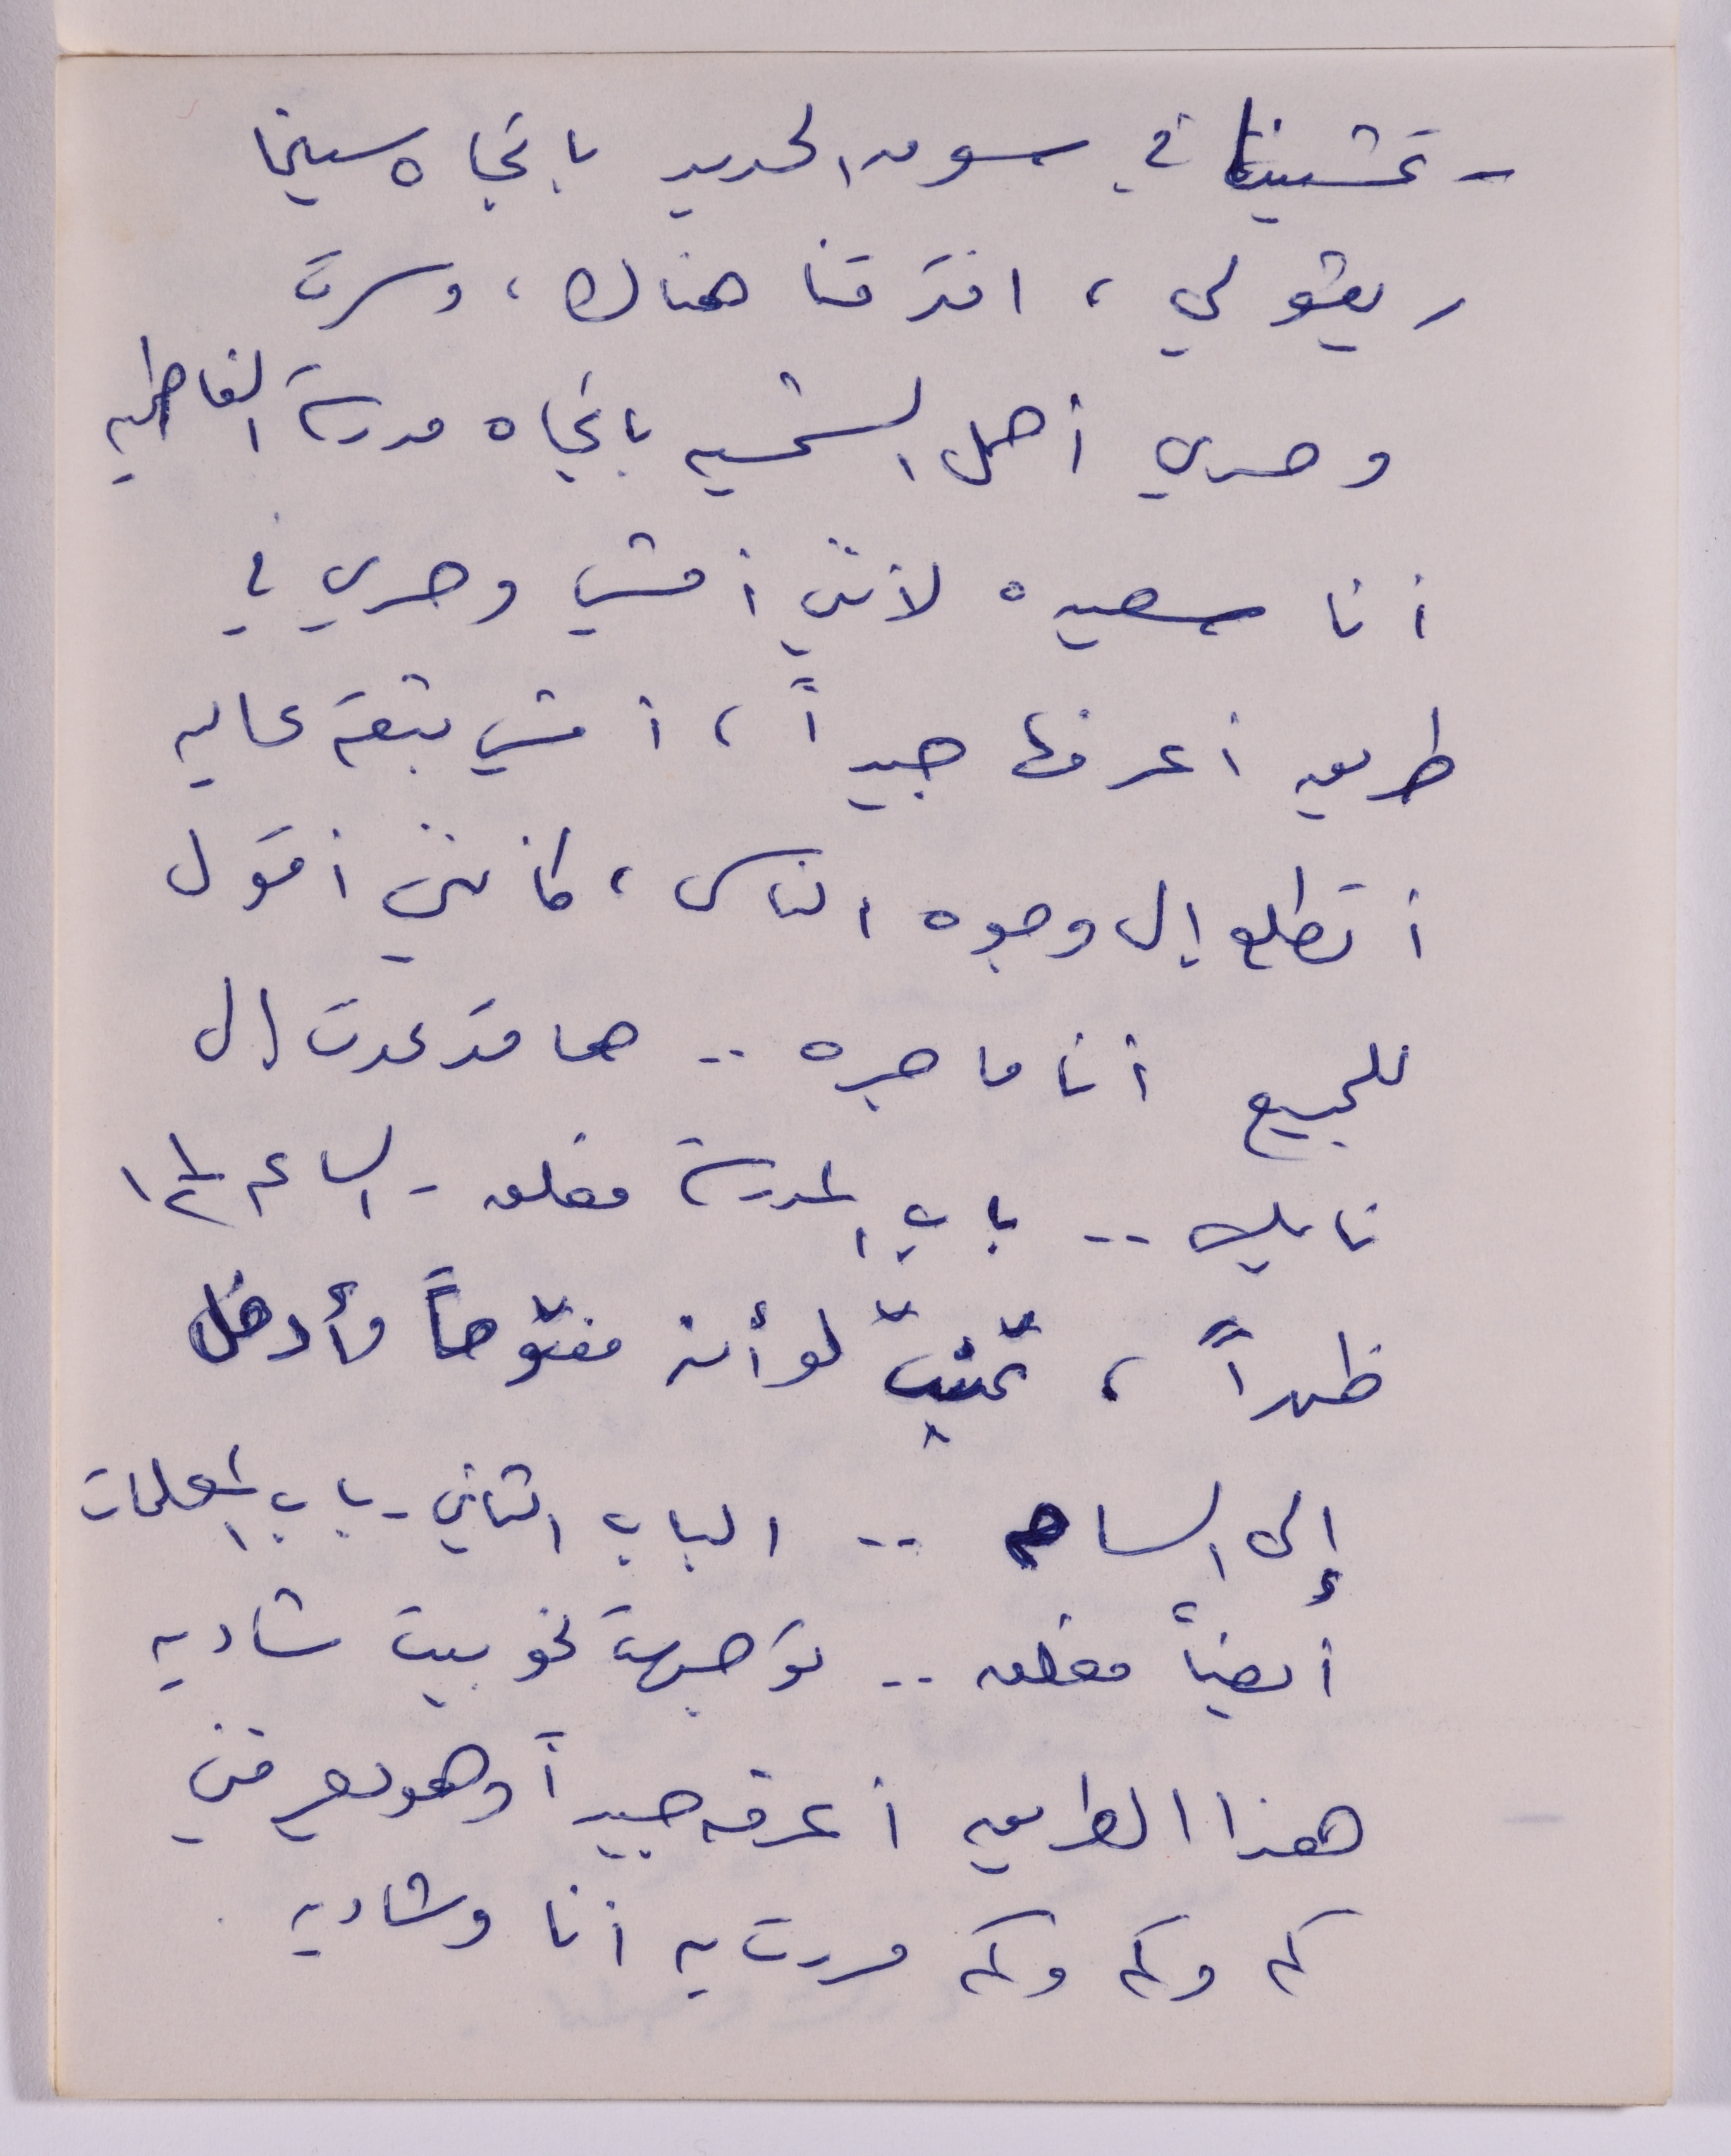 - تمشينا في سوق الحديد باتجاه سينما
ريفولي ، افترقنا هناك ، وسرتُ
وحدي أحمل الشمسيه باتجاه مدرسة الفاطميه
أنا سعيده لأنني أمشي وحدي في
طريق أعرفها جيداً ، أمشي بثقة عاليه
أتطلع إلى وجوه الناس ، كأنني أقول
للجميع أنا ماجده .. ها قد عدت إلى
نابلس .. باب المدرسة مغلق - الساعه ١ ١/٢
ظهراً ، تمنيّت لو أنه مفتوحاً وأدخل
إلى الساحه .. الباب الثاني - باب المعلمات
أيضاً مغلق .. توجهت نحو بيت شاديه
هذا الطريق أعرفه جيداً وهو يعرفني
كم وكم وكم مررت به أنا وشاديه